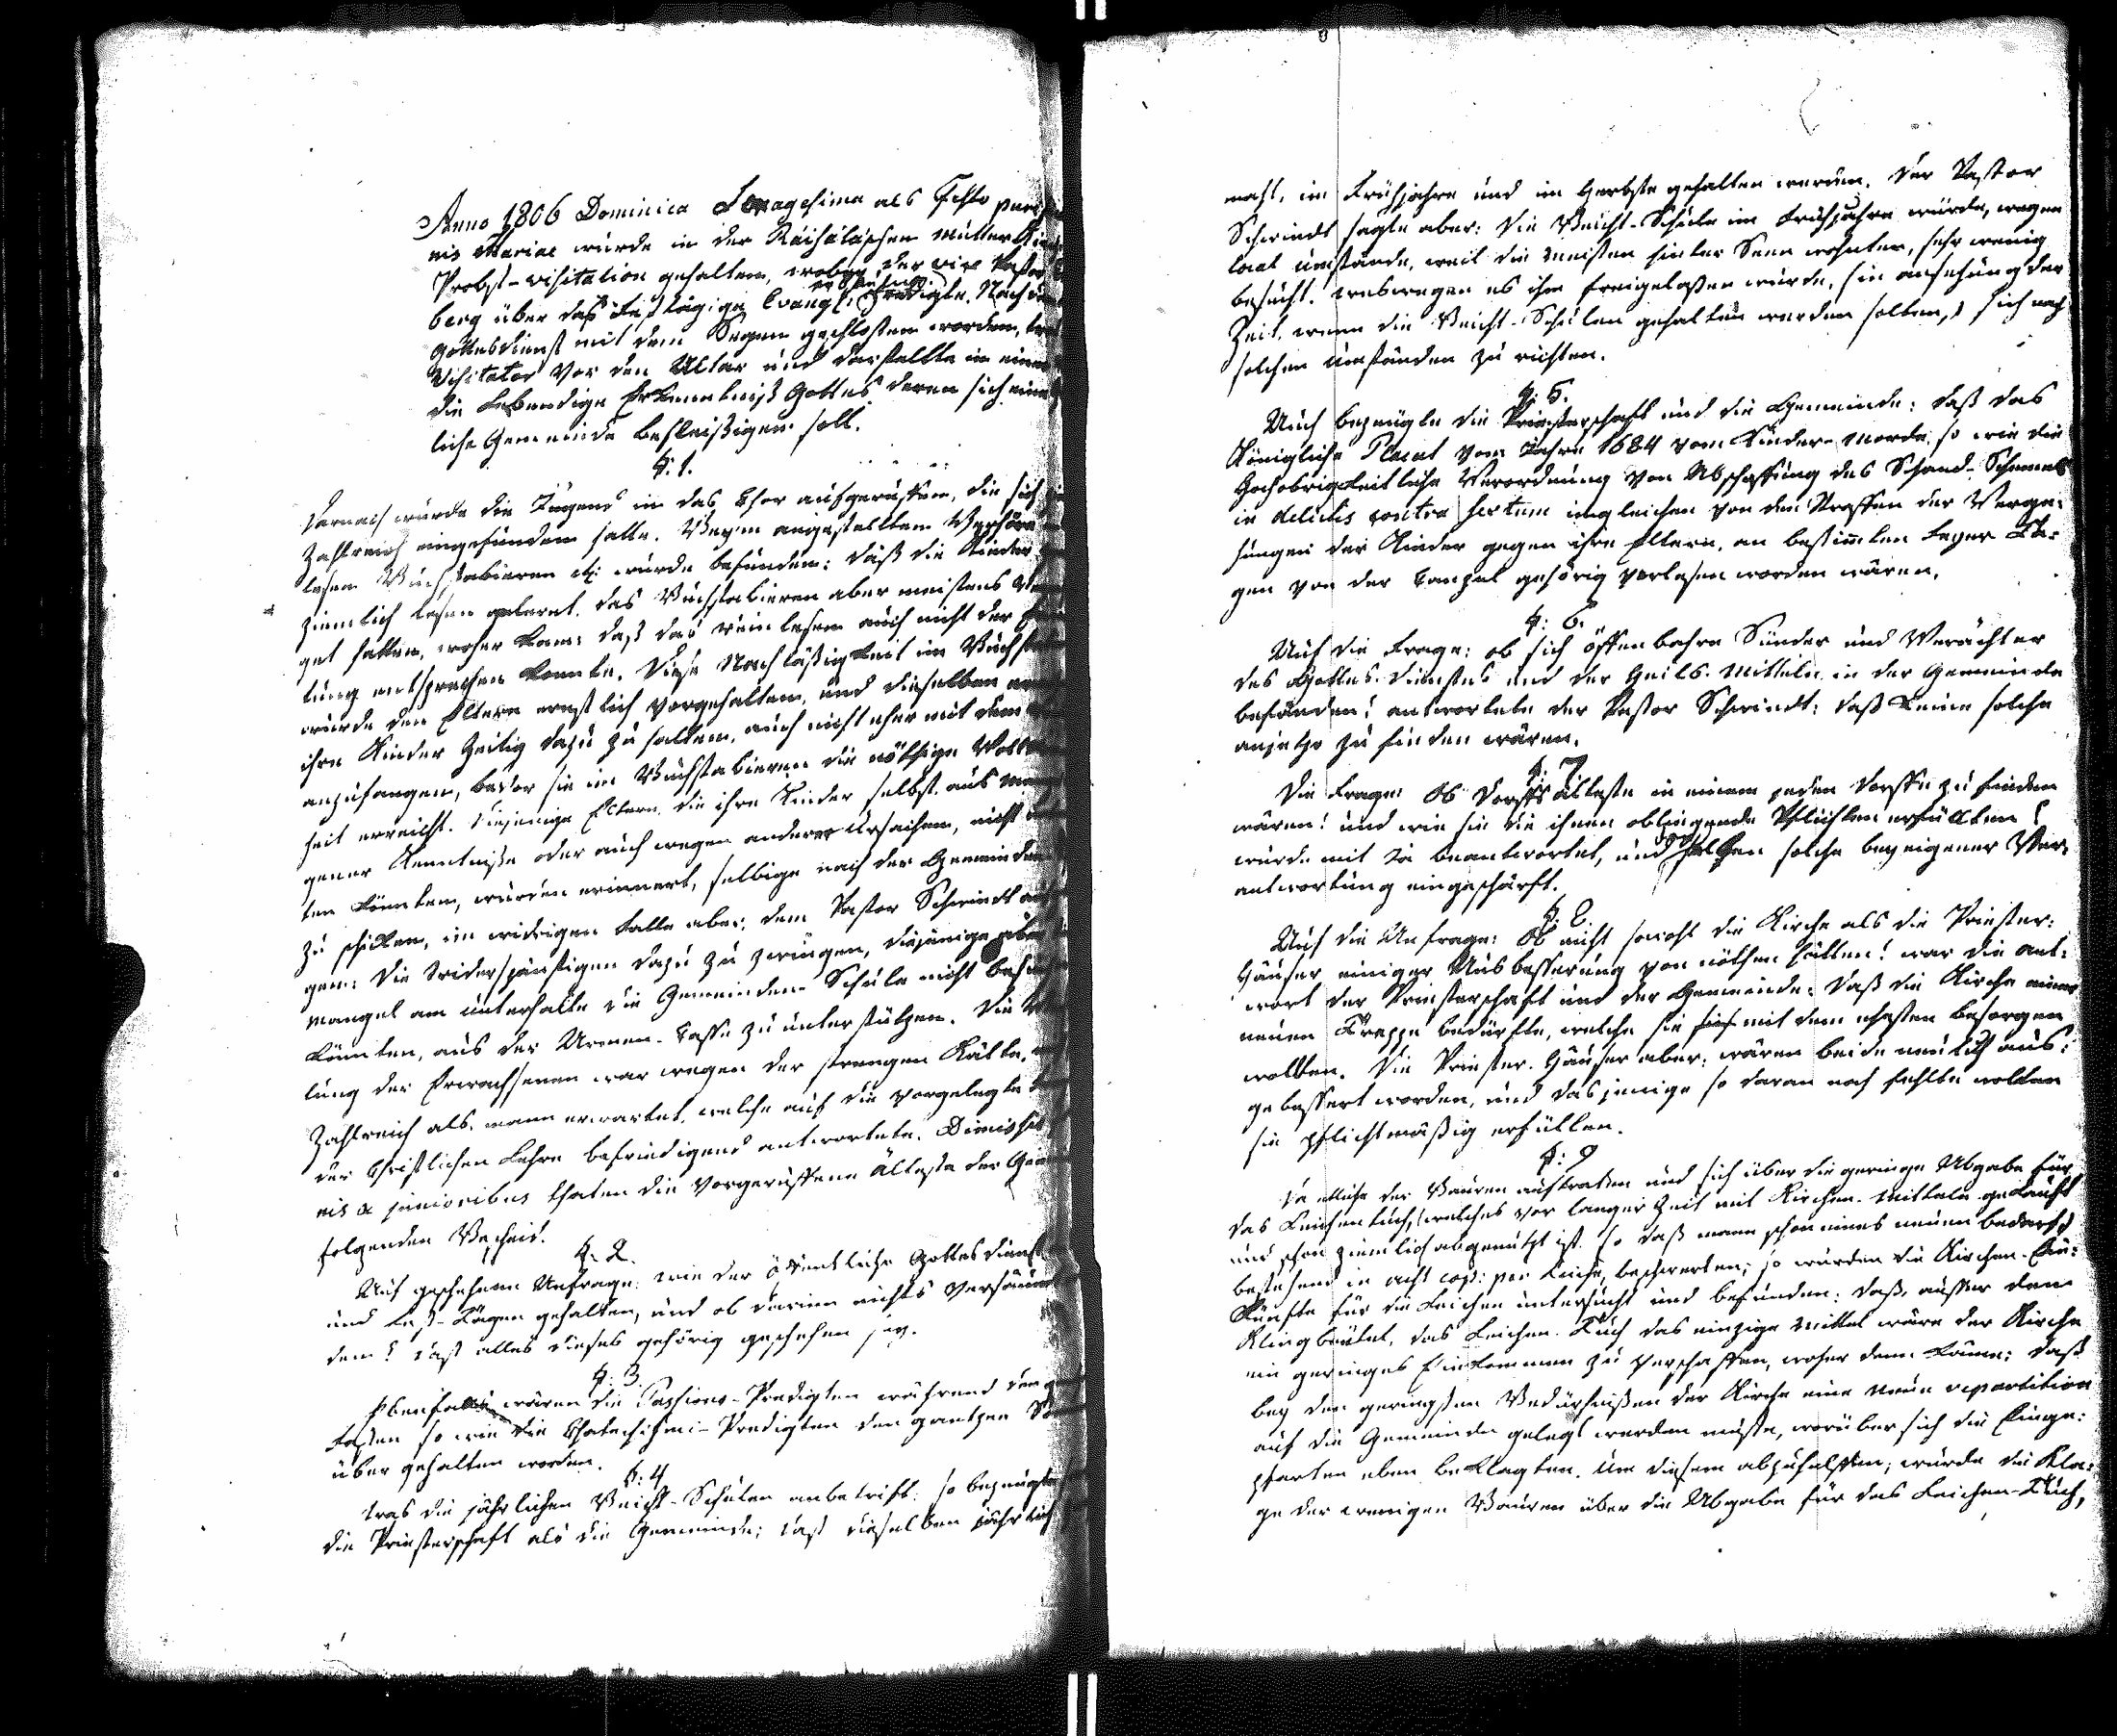 Anno 1806 Dominica Sexagesima als Festo purific
nis Mariae wurde in der Räisäläschen Mutter Kirche
Probst-visitation gehalten, wobey der vice Pastor
berg über das Festtägige Evangl: predigte. Nachdem
Gottesdienst mit dem Seegen geschlossen worden, trat
Visitator vor den Altar und darstellte in einer
die Lebendige Erkenntniß Gottes deren sich eine
liche Gemeinde befleißigen soll.
§: 1.
Darnach wurde die Jugend in das Chor aufgeruffen, die sich
Zahlreich eingefunden hatte. Bey'm angestellten Verhöre
lesen Buchstabieren etc: wurde befunden: daß die Kinder
ziemlich lesen gelernt, das Buchstabieren aber meistens
get hätten, woher kam: daß das rein lesen auch nicht der
tung entsprechen konnte. Diese Nachläßigkeit im Buchsta
wurde den Eltern ernstlich vorgehalten, und dieselben
ihre Kinder Zeitig dazu zu halten, auch nicht eher mit dem
anzufangen, bevor sie im Buchstabieren die nöthige Voll
heit erreicht. Diejenige Eltern, die ihre Kinder selbst aus man
gener Kenntniße oder auch wegen anderer Ursachen, nicht
ten könnten, wurden erinnert, selbige nach der Gemeinden
zu schicken, im widrigen Falle aber, dem Pastor Schwindt
gen: die Widerspänstigen dazu zu zwingen, diejenige aber
Mangel am unterhalte die Gemeinden-Schule nicht besu
könnten, aus der Armen-Casse zu unterstützen. Die
lung der Erwachsenen war wegen der strengen Kälte,
Zahlreich als mann erwartet, welche auf die vorgelegte
der Christlichen Lehre befriedigend antwortete. Dimissis
nis a junioribus thaten die Vorgeruffene Älteste der Gem
folgenden Bescheid.
§: 2.
Auf geschehene Anfrage: wie der öffentliche Gottesdienst
und Fest-Tägen gehalten, und ob darinn nichts Versäum
dem? daß alles dieses gehörig geschehen sey.
§: 3.
Ebenfalls wären die Passions-Predigten während der
Fasten so wie die Chatechismi-Predigten den gantzen So
über gehalten worden.
§: 4
Was die jährlichen Beicht-Schulen anbetrift: so bezeugte
die Priesterschaft als die Gemeinde; daß dieselben jährlich
mahl, im Frühjahre und im Herbste gehalten werden. Der Pastor
Schwindt sagte aber: die Beicht-Schule im Frühjahre würde, wegen
local umstände, weil die meisten hinter Seen wohnten, sehr wenig
besucht. weswegen es ihm freigelaßen wurde, hin ansehung der
Zeit, wenn die Beicht-Schulen gehalten werden sollten, sich nach
solchen Umständen zu richten.
§: 5.
Auch bezeugte die Priesterschaft und die Gemeinde: daß das
Königliche Placat vom Jahre 1684 vom Kinder-Morde, so wie die
Hochobrigkeitliche Verordnung von Abschaffung des Schand-Schemels
in delictis contra sextum ingleichen von den Straffen der Verge-
hungen der Kinder gegen ihre Eltern, an bestimten Feyer Ta-
gen von der Canzel gehörig verlesen worden wären.
§: 6.
Auf die Frage: ob sich öffenbahre Sünder und Verächter
des Gottes-dienstes und der Heils-Mitteln in der Gemeinde
befänden? antwortete der Pastor Schwindt: daß keine solche
anjetzo zu finden wären.
§: 7.
Die Frage: Ob Dorffs älteste in einem jeden Dorffe zu finden
wären? und wie sie die ihnen obliegende Pflichten erfüllten?
wurde mit Ja beantwortet, und solche bey eigener Ver-
antwortung eingeschärft.
§: 8.
Auf die Anfrage: Ob nicht sowohl die Kirche als die Priester-
Häuser einiger Ausbesserung von nöthen hätten? war die ant-
wort der Priesterschaft und der Gemeinde: daß die Kirche einer
neuen Treppe bedürfte, welche sie mit dem ehesten besorgen
wollten. Die Priester-Häuser aber, wären beide neulich aus-
gebessert worden, und dasjenige so daran noch fehlte wollten
sie pflichtmäßig erfüllen.
§: 9
Da etliche der Bauren auftraten und sich über die geringe Abgabe für
das Leichentuch, (welches vor langer Zeit mit Kirchen-Mitteln gekauft
und schon ziemlich abgenutzt ist, so daß mann schon eines neuen bedarf)
bestehend in acht cop: per Leiche, beschwerten; so wurden die Kirchen-Ein-
künfte für die Leichen untersucht und befunden: daß, ausser dem
Klingbeutel, das Leichen-Tuch das einzige Mittel wäre der Kirche
ein geringes Einkommen zu verschaffen, woher denn käme: daß
bey den geringsten Bedürfnißen der Kirche eine neue repartition
auf die Gemeinde gelegt werden müste, worüber sich die Einge-
pfarten eben beklagten. Um diesem abzuhelffen; wurde die Kla-
ge der wenigen Bauren über die Abgabe für das Leichen-Tuch,